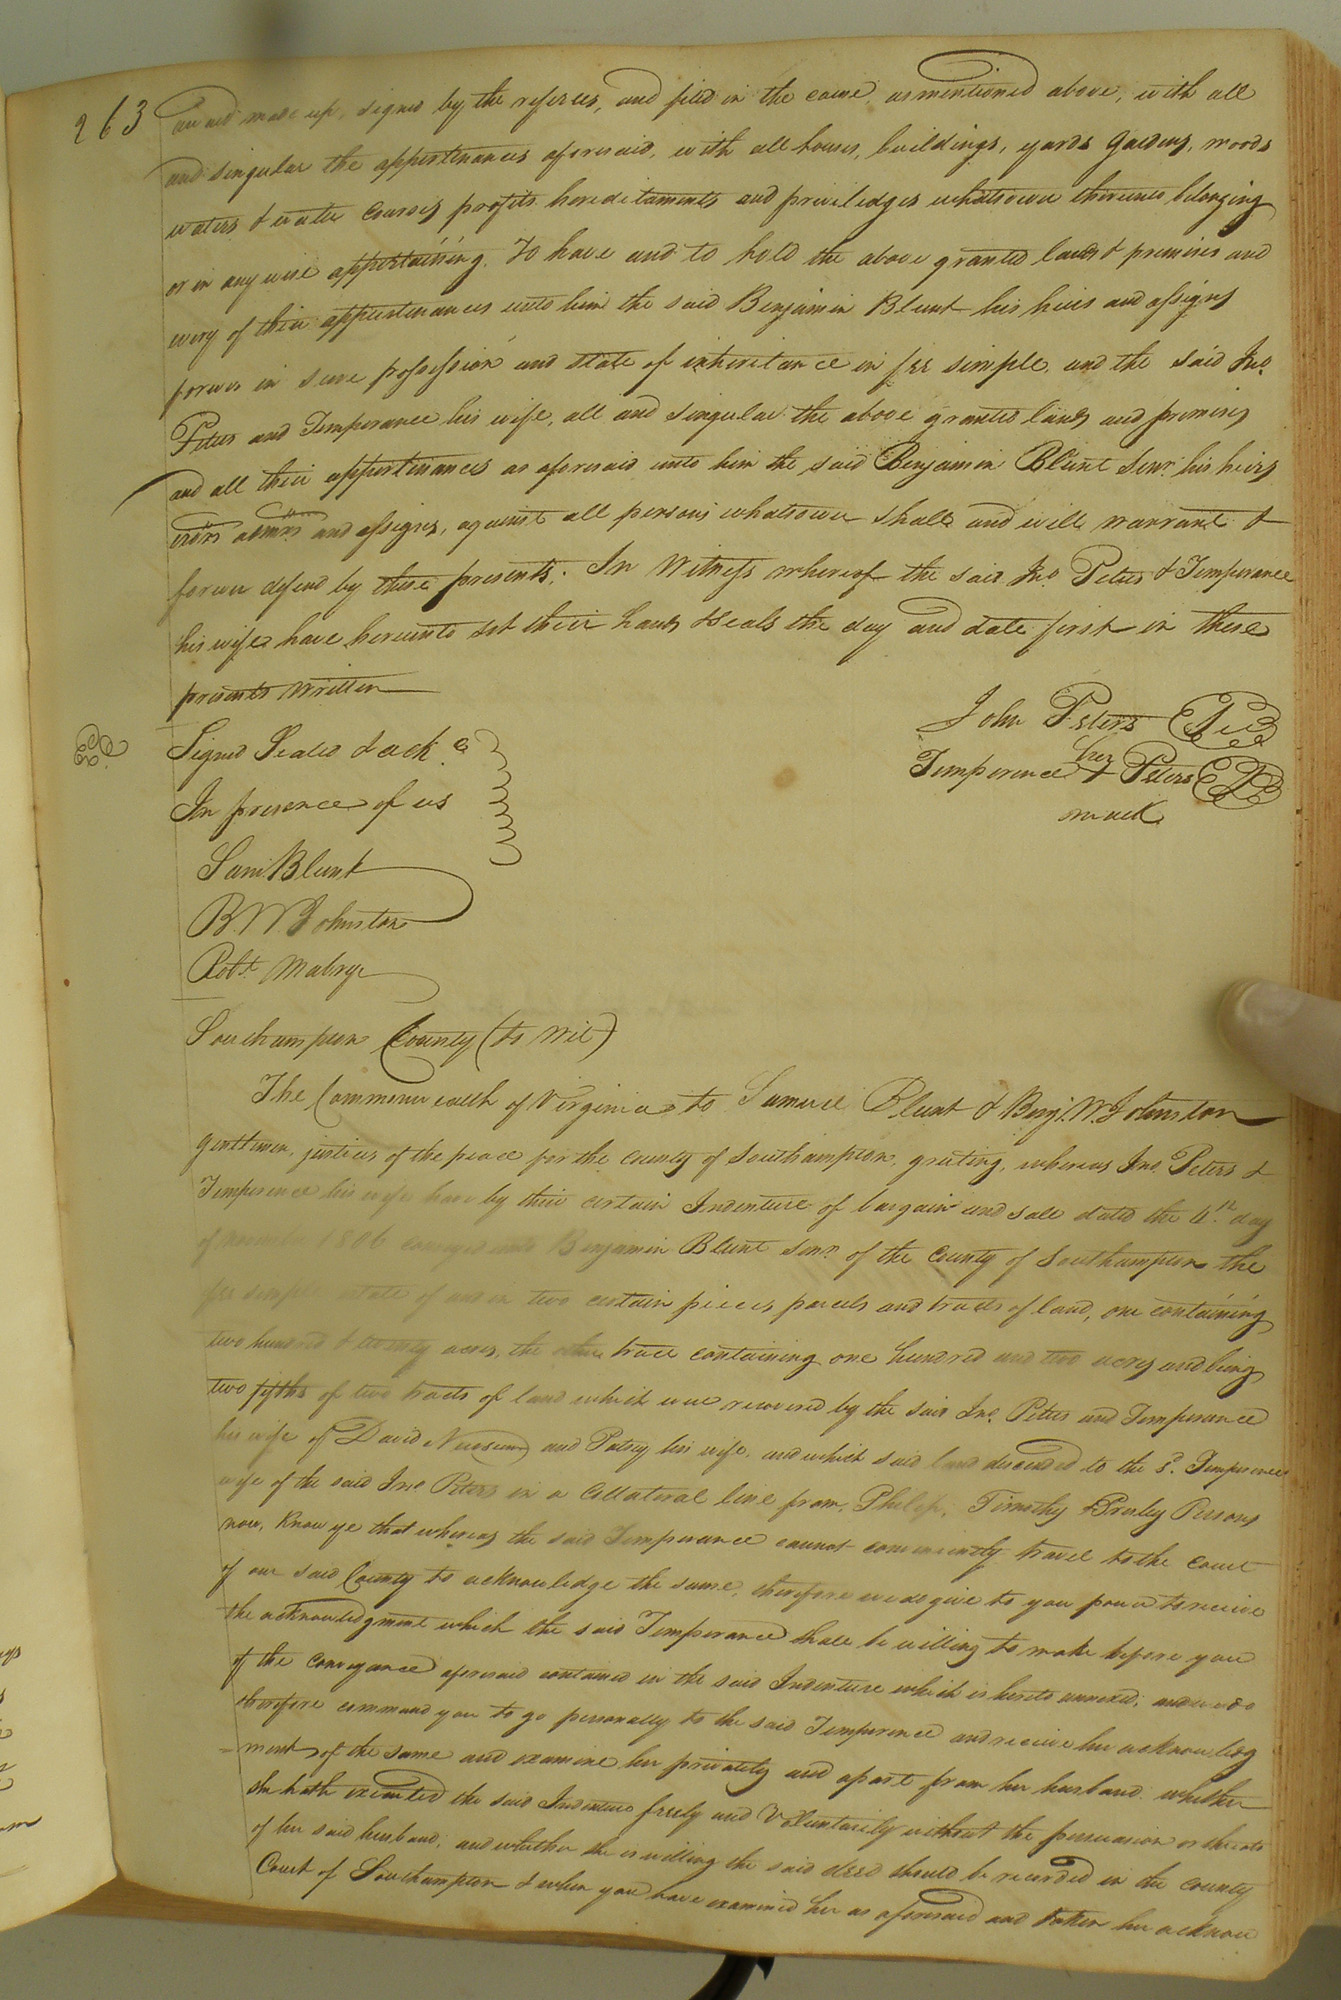 263
award made up, signed by the referees, and filed in the cause, as mentioned above, with all
and singular the appertinances aforesaid, with all houses, buildings, yards Gardens, woods
waters & water courses profits hereditaments and priviledges whatsoever thereunto belonging
or in any wise appertaining. To have and to hold the above granted lands & premises and
every of their appurtenances unto him the said Benjamin Blunt his heirs and assigns
forever in sure possession and state of inheritance in fee simple, and the said Jno.
Peters and Temperance his wife, all and singular the above granted lands and premises
and all their appertinances as aforesaid unto him the said Benjamin Blunt Senr. his heirs
exors admrs and assigns, against all persons whatsoever shall and will warrant &
forever defend by these presents. In Witness whereof the said Jno. Peters & Temperance
his wife have hereunto set their hands & seals the day and date first in these
presents written
John Peters
Signed Sealed & ack.
her
Temperence + Peters
mark
In presence of us
Saml Blunt
B. W Johnston
Robt. Mabry
Southampton County (to wit)
The Commonwealth of Virginia to Samuel Blunt & Benj. W. Johnston
Gentlemen, justices of the peace for the County of Southampton, greeting, whereas Jno. Peters &
Temperence his wife have by their certain Indenture of bargain and sale dated the 4th. day
of november 1806 conveyed unto Benjamin Blunt Senr. of the County of Southampton the
fee simple estate of and in two certain pieces parcels and tracts of land, one containing
two hundred & twenty acres, the other tract containing one hundred and two acres and being
two fifths of two tracts of land which were recovered by the said Jno. Peters and Temperance
his wife of David Newsum and Patsey his wife, and which said land descended to the sd. Temperence
wife of the said Jno Peters in a Collateral line from, Philip, Timothy & Presley Persons
now, Know ye that whereas the said Temperance cannot conveniently travel to the court
of our said County to acknowledge the same, therefore we do give to you power to receive
the acknowledgment which the said Temperance shall be willing to make before you
of the conveyance aforesaid contained in the said Indenture which is hereto annexed, and we do
therefore command you to go personally to the said Temperence and receive her acknowledg
=ment of the same and examine her privately and apart from her husband, whether
she hath executed the said Indenture freely and Voluntarily without the persuasion or threats
of her said husband, and whether she is willing the said deed should be recorded in the County
Court of Southampton & when you have examined her as aforesaid and taken her acknow